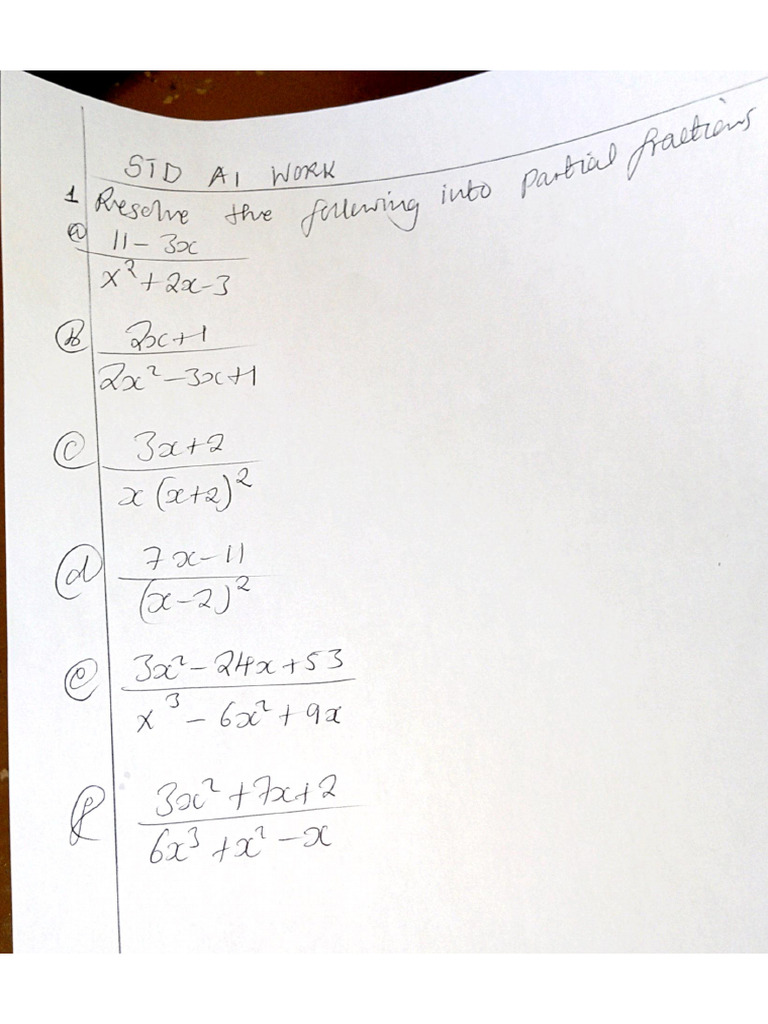 STD A1 WORK
1 Resolve the following into partial fractions
(a) 11 - 3x
x² + 2x - 3
(b) 2x+1
2x² - 3x+1
(c) 3x+2
x (x+2)²
(d) 7x-11
(x-2)²
(e) 3x² - 24x + 53
x³ - 6x² + 9x
f 3x² + 7x+2
6x³ + x² - x